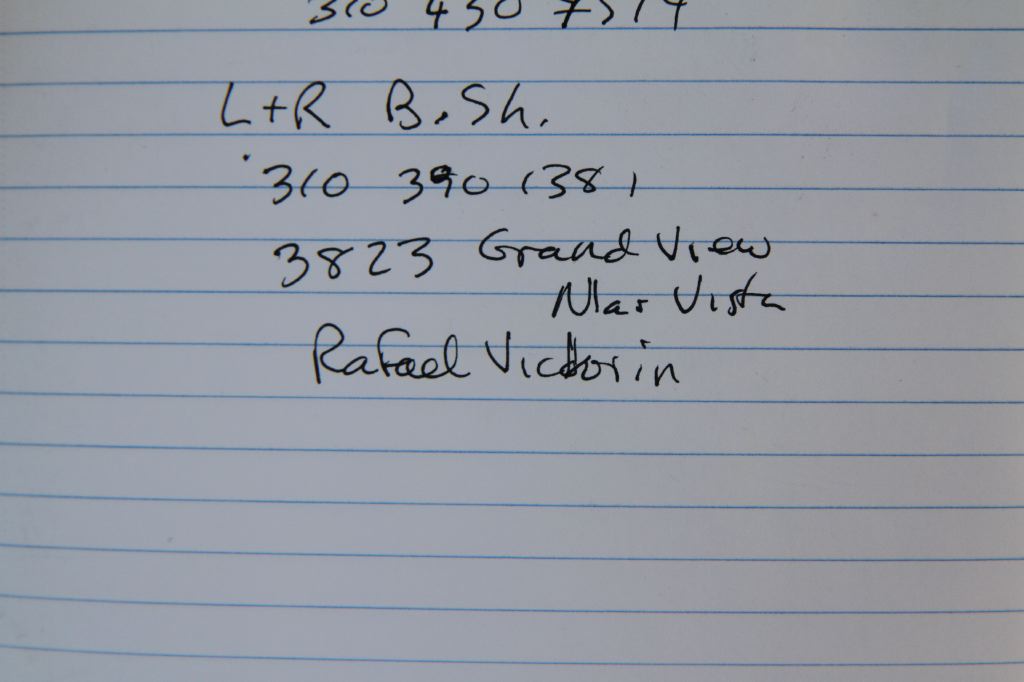 310 450 7514
L+R B.Sh.
310 390 1381
3823 Grand View
Mar Vista
Rafael Victorin